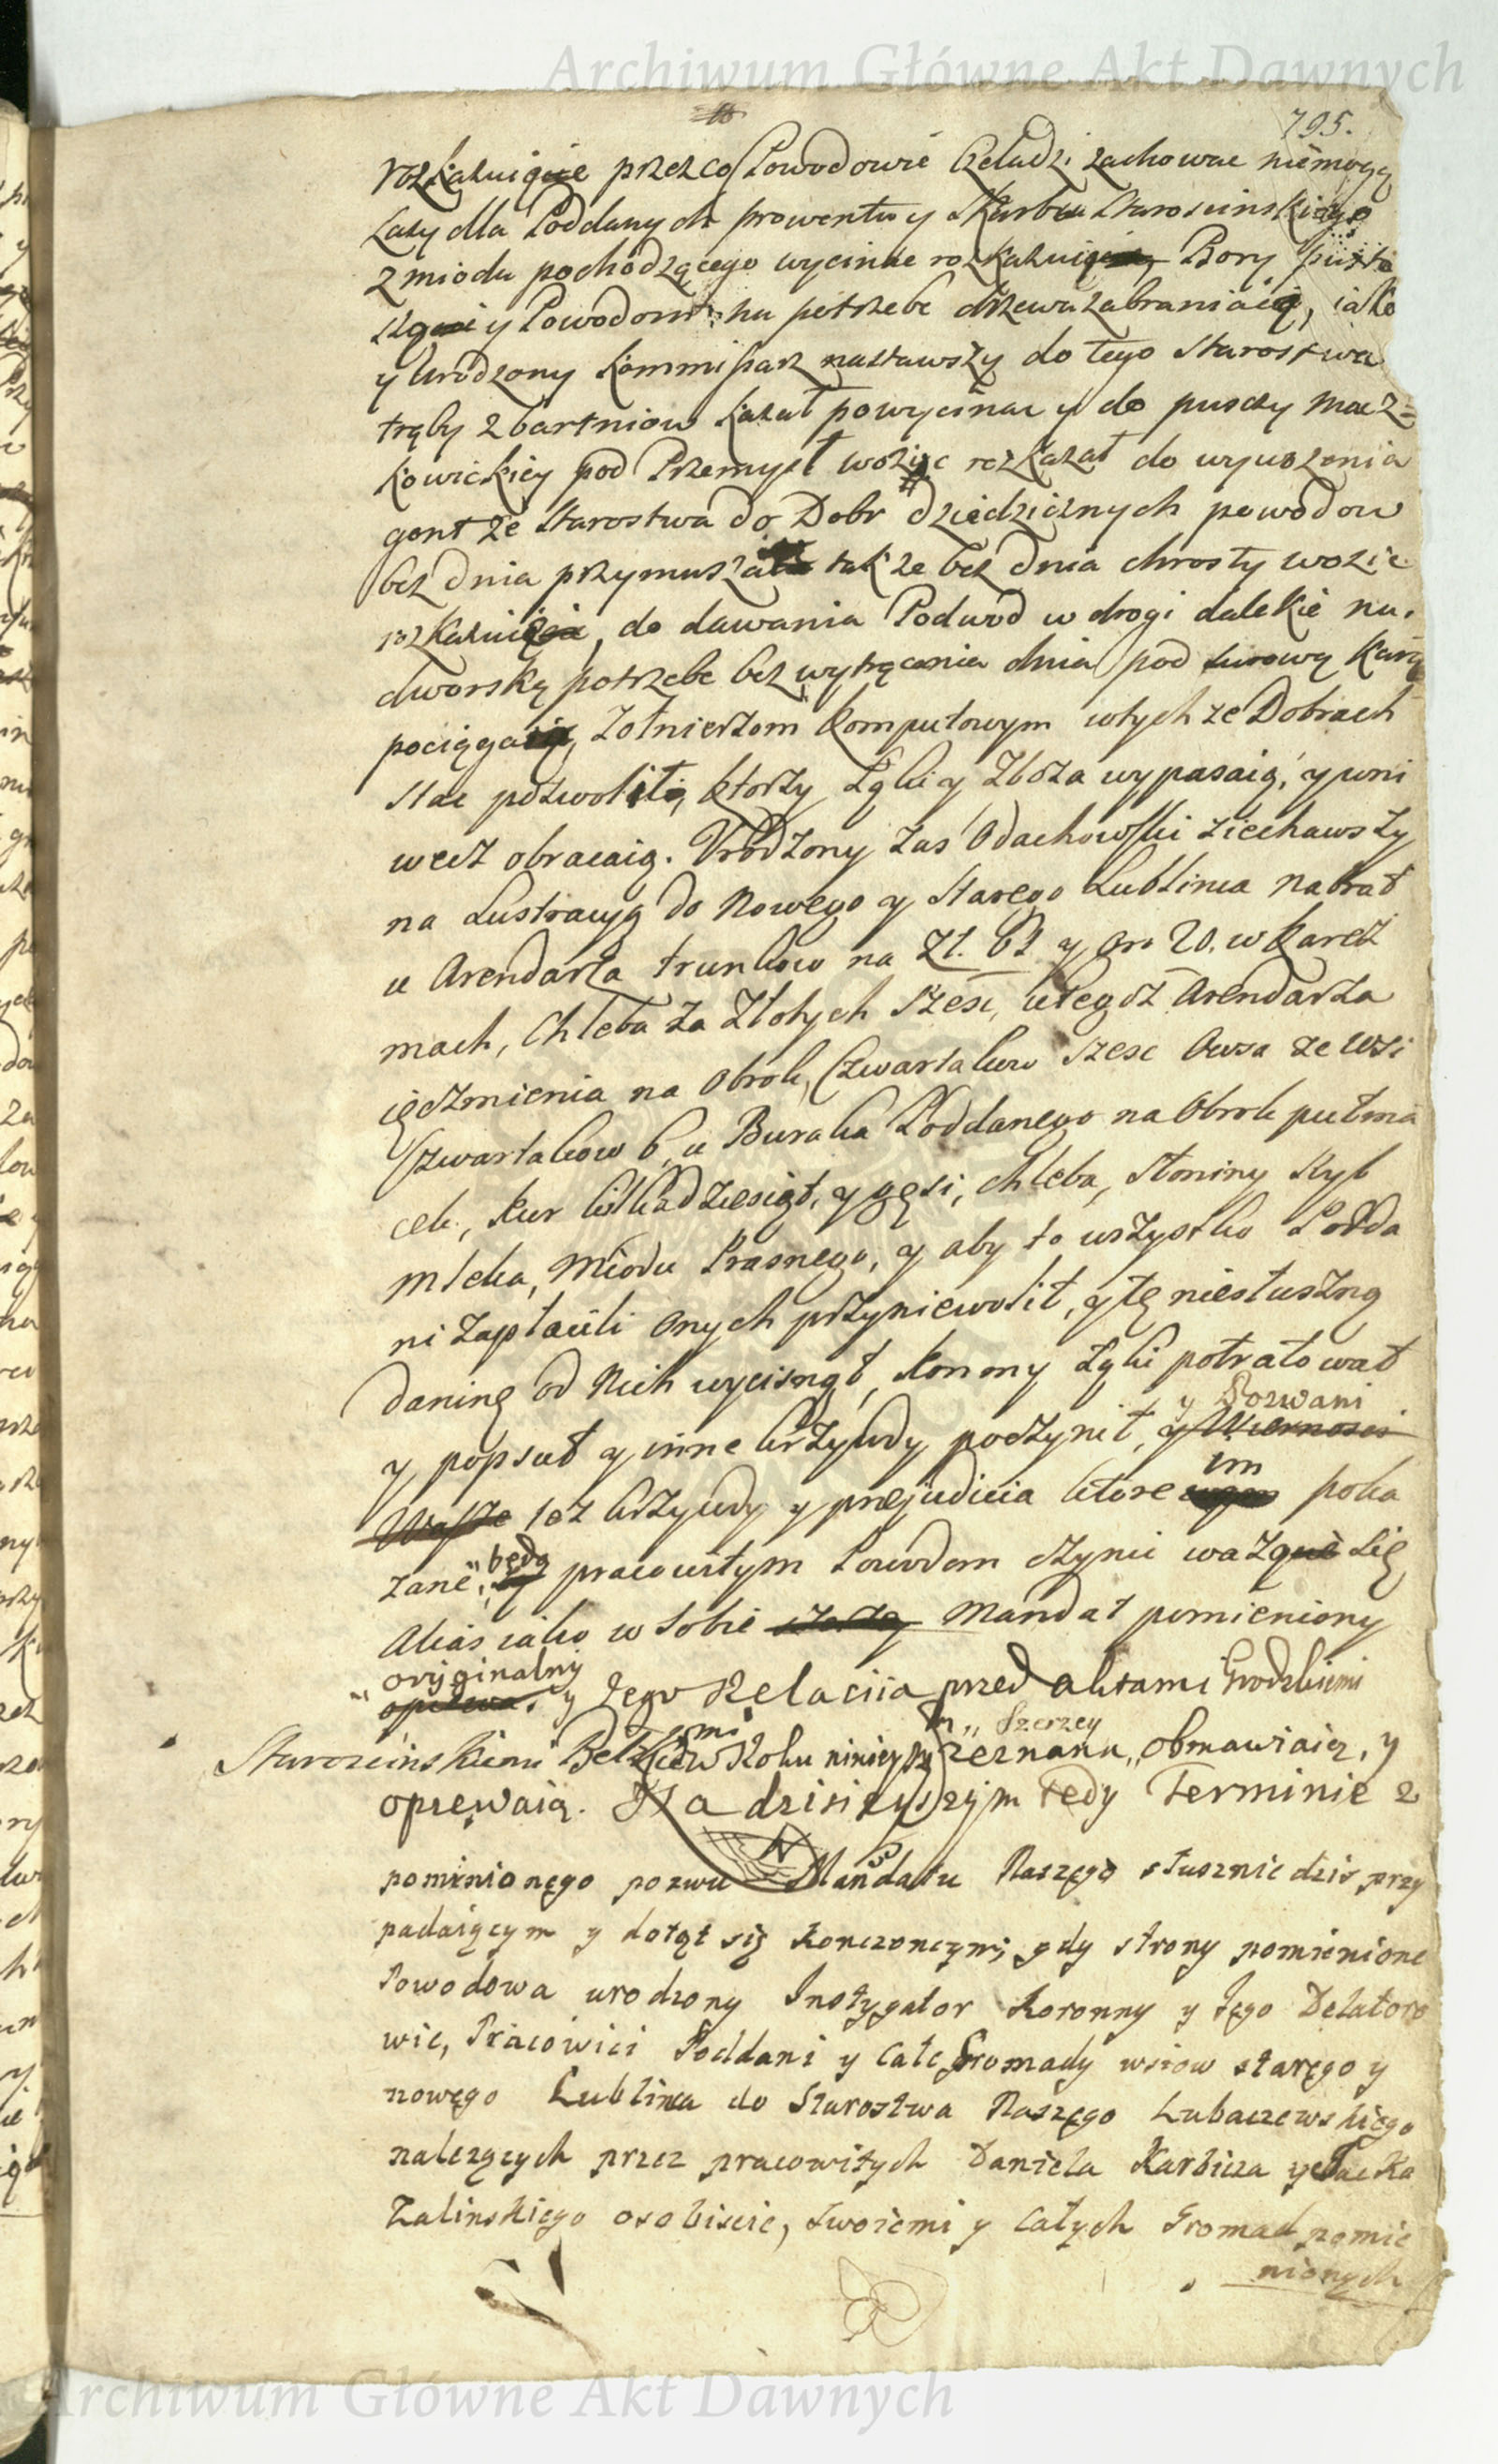 Archiwum Główne Akt Dawnych
795.
rozkazuiące przez co Powodowie Czeladzi zachowac niemogą
Lasy dla Poddanych prowentu y Skarbu Staroscinskiego
z miodu pochodzącego wycinac rozkazuią, Bory pusto
szą y Powodom na potrzebe drzewa zabraniaią, iako
y Urodzony Kommissarz nastawszy do tego Starostwa
trąby z bartniow kazał powycinac y do puszczy Macz=
kowickiey pod Przemysl wozic rozkazał do wywozenia
gont ze Starostwa do Dobr dziedzicznych powodow
bez dnia przymuszał takze bez dnia chrosty wozic
rozkazuią, do dawania Podwod w drogi dalekie na
dworską potrzebe bez wytrącenia dnia pod surową karą
pociągaią, Zołnierzom Komputowym wtych ze Dobrach
stac pozwolili, ktorzy Łąki y Zboza wypasaią, y wni
wecz obracaią. Urodzony zas Odachowski ziechawszy
na Lustracyą do Nowego y Starego Lublinca nabrał
u Arendarza trunkow na Zł. 62 y gr. 20. w karcz
mach, Chleba za Złotych szesc, u tegoz Arendarza
ięczmienia na obrok, Czwartakow szesc Owsa ze wsi
Czwartakow 6, u Buraka Poddanego na Obrok pułma
cek, kur kilkadziesiąt, y gęsi, chleba, słoniny Ryb
mleka, Miodu Prasnego, y aby to wszystko Podda
ni zapłacili onych przyniewolił, y tę niesłuszną
daninę od Nich wycisnął, konmy Łąki potratował
y Pozwani
y popsuł y inne krzywdy poczynił, y Wiernosci
im
Wasze tez krzywdy y prejudicia ktore poka
będą
zane, pracowitym Powodom czynic wazą się
Akas iako w sobie Mandat pomieniony
oryginalny
opiewa. y Jego Relaciia przed aktami Grodzkiemi
emi m Szerzey
Staroscinskiemi Bełzkiem w Roku ninieyszy zeznana, obmawiaią, y
opiewaią. Na dzisieyszym tedy Terminie z
pomienionego pozwu Mandatu Naszego słusznie dzis przy
padaiącym y dotąt się konczonczym, gdy strony pomienione
Powodowa urodzony Instygator Koronny y Jego Delatoro
wie, Pracowici Poddani y całe Gromady wsiow starego y
nowego Lublinca do Starostwa Naszego Lubaczewskiego
nalezących przez pracowitych Daniela Karbicza y Jacka
Zalinskiego osobiscie, swoiemi y całych Gromad pomie
nionych
Archiwum Główne Akt Dawnych